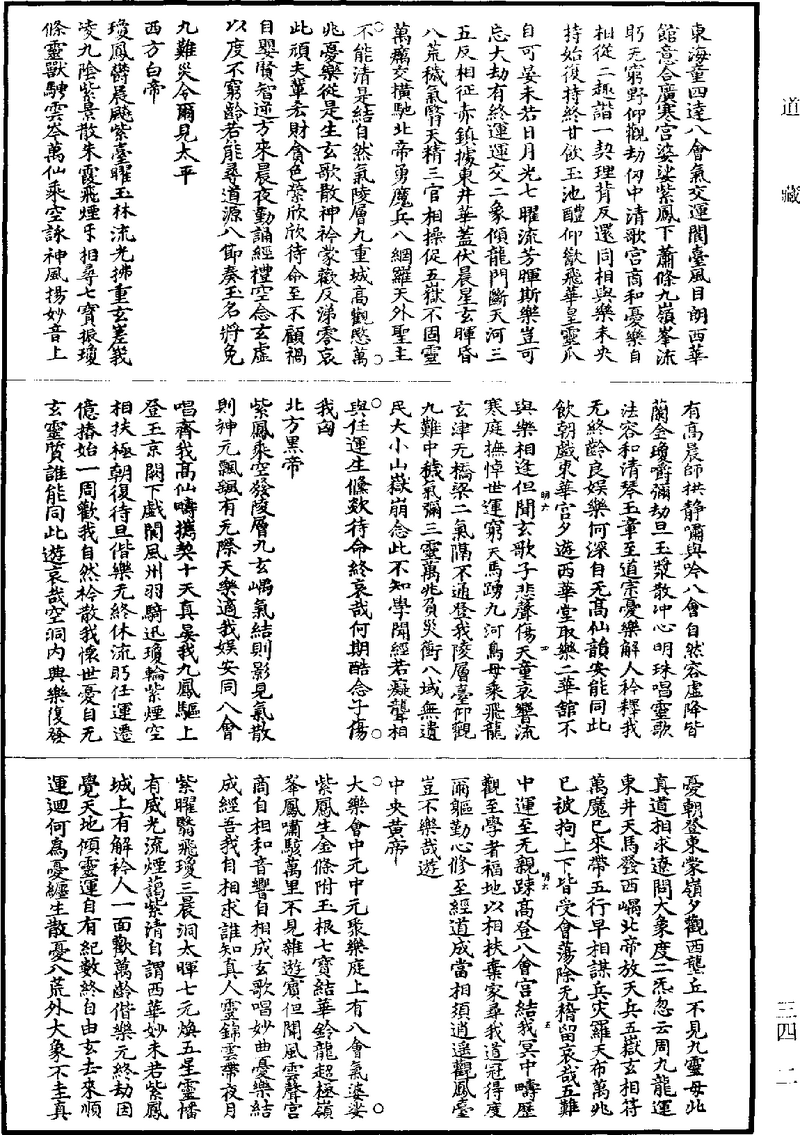 道藏
東海童四達八會氣交運閬臺風日朗西華
館意合廣寒宮婆娑紫鳳下蕭條九嶺峯流
眄无窮野仰觀劫仞中清歌宮商和憂樂自
相從二趣諧一契理背反還同相與樂未央
持始復持終甘飲玉池醴仰歠飛華皇靈瓜
自可晏未若日月光七曜流芳暉斯樂豈可
忘大劫有終運運交二象傾龍門斷天河三
五反相征赤鎮據東井華蓋伏晨星玄暉昏
八荒穢氣翳天精三官相操促五嶽不固靈
萬厲交橫馳北帝勇魔兵八網羅天外聖主
不能清是結自然氣陵層九重城高觀愍萬
兆憂樂從是生玄歌散神衿蒙歡反涕零哀
此頑夫輩玄財貪色榮欣欣待命至不顧禍
目嬰賢智逆方來晨夜勤誦經禮空念玄虛
以度不窮齡若能尋道源八節奏玉名將免
九難災令爾見太平
西方白帝
瓊鳳鬱晨飇紫臺曜玉林流光拂重玄峩
凌九陰紫景散朱霞飛煙牙相尋七寶振瓊
條靈獸騁雲岑萬仙乘空詠神風揚妙音上
有高晨師拱靜嘯與吟八會自然容虛降皆
蘭金瓊爵彌劫旦玉漿散沖心明珠唱靈歌
法容和清琴玉章至道宗憂樂解人衿釋我
无終齡良娛樂何深自无高仙韻安能同此
飲朝戲東華宮夕遊西華堂取樂二華館不
與樂相逢但聞玄歌子悲聲傷天童哀響流
寒庭撫悼世運窮天馬踴九河鳥母乘飛龍
玄津无橋梁二氣隔不通登我陵層臺仰觀
九難中穢氣彌三靈萬兆負災衝八域無遺
民大小山嶽崩念此不知學聞經若癡聾相
與任運生儵欻待命終哀哉何期酷念子傷
我匈
北方黑帝
紫鳳乘空發陵層九玄嵎氣結則影見氣散
則神元飄颻有无際天樂適我娛安同八會
唱齊我高仙疇攜契十天真晏我九鳳驅上
登玉京闕下戲閬風州羽騎迅瓊輪紫煙空
相扶極朝復待旦偕樂无終休流眄任運遷
億椿始一周歡我自然衿散我懷世憂自无
玄靈質誰能同此遊哀哉空洞內興樂復發
憂朝登東蒙嶺夕觀西龔丘不見九靈母此
真道相求遼問大象度二炁忽云周九龍運
東井天馬發西嵎北帝放天兵五嶽玄相待
萬魔已來帶五行早相謀兵災羅天布萬兆
已被拘上下皆受會蕩除无稽留哀哉五難
中運至无親踈高登八會宮結我冥中疇歷
觀至學者福地以相扶棄家尋我道冠得度
爾軀勤心修至經道成當相須逍遥觀鳳臺
豈不樂哉遊
中央黃帝
大樂會中元中元聚樂庭上有八會氣婆娑
紫鳳生金條附玉根七寶結華鈴龍超極嶺
峯鳳嘯駭萬里不見雜遊賓但聞風雲聲宮
商自相和音響自相成玄歌唱妙曲憂樂結
成經吾我自相求誰知真人靈錦雲帶夜月
紫曜翳飛瓊三晨洞太暉七元煥五星靈幡
有威光流煙謁紫清自謂西華妙未若紫鳳
城上有解衿人一面歡萬齡偕樂无終劫因
覺天地傾靈運自有紀數終自由玄去來順
運迴何為憂纏生散憂八荒外大象不圭真
三四
二